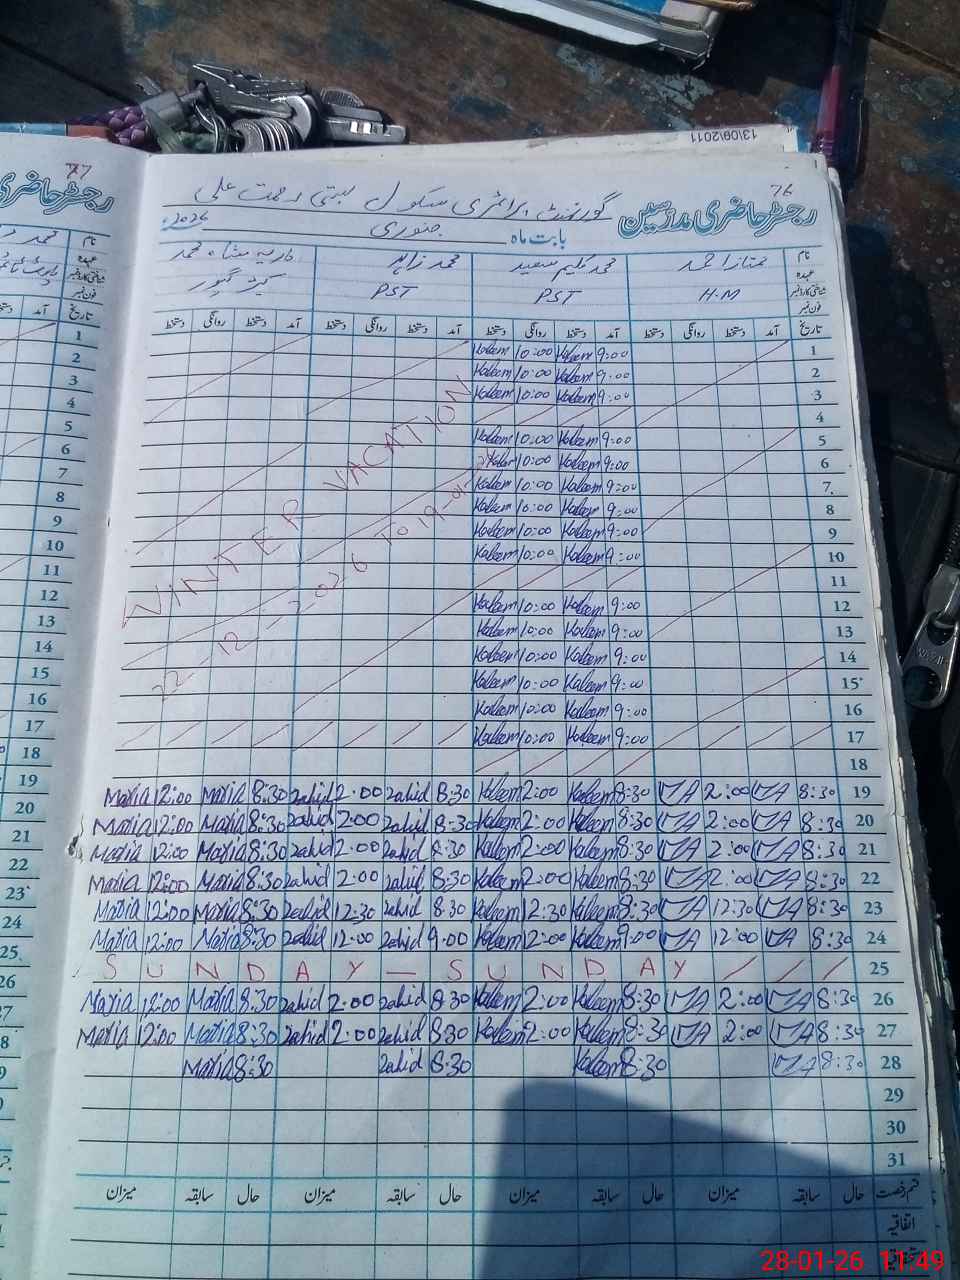 13/09/2011
77
76
رجسٹر حاضری مدرسین گورنمنٹ پرائمری سکول بستی رحمت علی
بابت ماہ جنوری 2026ء
نام ممتاز احمد محمد کلیم سعید محمد زاہد ماریہ
عہدہ
شناختی کارڈ نمبر H.M PST PST
فون نمبر
تاریخ آمد دستخط روانگی دستخط آمد دستخط روانگی دستخط آمد دستخط روانگی دستخط آمد دستخط روانگی دستخط
Kaleem 10:00 Kaleem 9:00 1
Kaleem 10:00 Kaleem 9:00 2
Kaleem 10:00 Kaleem 9:00 3
4
Kaleem 10:00 Kaleem 9:00 5
10:00 Kaleem 9:00 6
Kaleem 10:00 Kaleem 9:00 7
Kaleem 10:00 Kaleem 9:00 8
Kaleem 10:00 Kaleem 9:00 9
Kaleem 10:00 Kaleem 9:00 10
11
Kaleem 10:00 Kaleem 9:00 12
Kaleem 10:00 Kaleem 9:00 13
Kaleem 10:00 Kaleem 9:00 14
Kaleem 10:00 Kaleem 9:00 15
Kaleem 10:00 Kaleem 9:00 16
Kaleem 10:00 Kaleem 9:00 17
18
WINTER VACATION
22-12-2026 TO 19-01-
Maria 12:00 Maria 8:30 zahid 2:00 zahid 8:30 Kaleem 2:00 Kaleem 8:30 MA 2:00 MA 8:30 19
Maria 12:00 Maria 8:30 zahid 2:00 zahid 8:30 Kaleem 2:00 Kaleem 8:30 MA 2:00 MA 8:30 20
Maria 12:00 Maria 8:30 zahid 2:00 zahid 8:30 Kaleem 2:00 Kaleem 8:30 MA 2:00 MA 8:30 21
Maria 12:00 Maria 8:30 zahid 2:00 zahid 8:30 Kaleem 2:00 Kaleem 8:30 MA 2:00 MA 8:30 22
Maria 12:00 Maria 8:30 zahid 12:30 zahid 8:30 Kaleem 12:30 Kaleem 8:30 MA 12:30 MA 8:30 23
Maria 12:00 Maria 8:30 zahid 12:00 zahid 9:00 Kaleem 12:00 Kaleem 9:00 MA 12:00 MA 8:30 24
SUNDAY — SUNDAY / / / 25
Maria 12:00 Maria 8:30 zahid 2:00 zahid 8:30 Kaleem 2:00 Kaleem 8:30 MA 2:00 MA 8:30 26
Maria 12:00 Maria 8:30 zahid 2:00 zahid 8:30 Kaleem 2:00 Kaleem 8:30 MA 2:00 MA 8:30 27
Maria 8:30 zahid 8:30 Kaleem 8:30 MA 8:30 28
29
30
31
قسم رخصت حال سابقہ میزان حال سابقہ میزان حال سابقہ میزان حال سابقہ میزان
اتفاقیہ
28-01-26 11:49